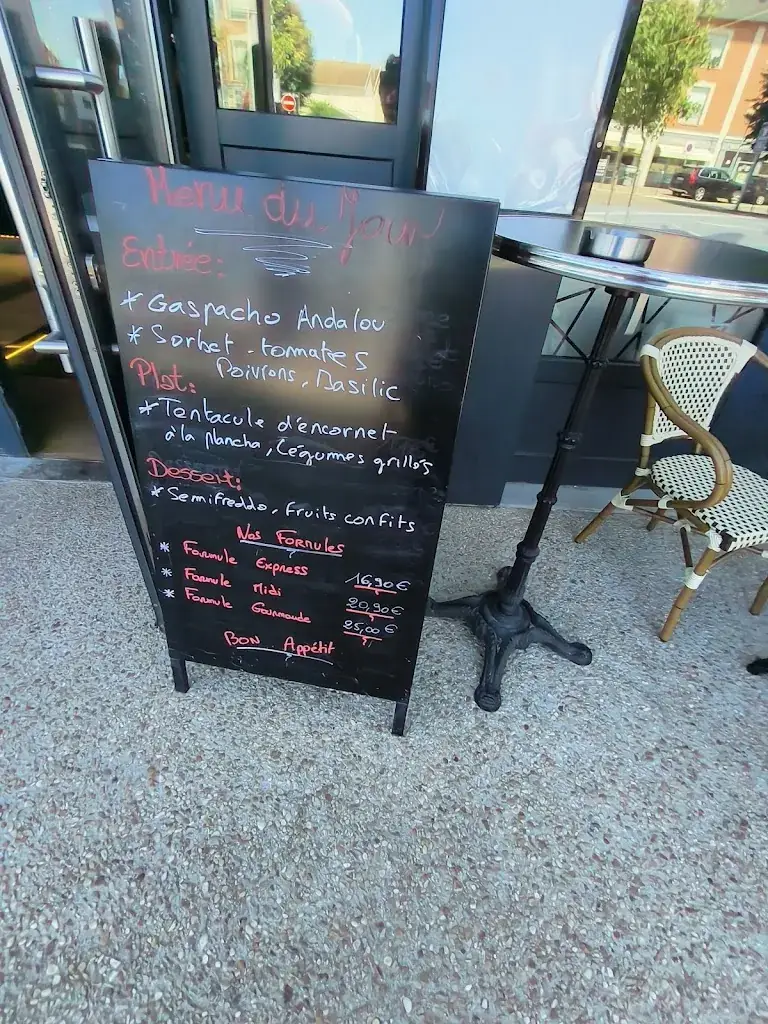 Menu du Jour
Entrée:
* Gaspacho Andalou
* Sorbet tomates
Poivrons, Basilic
Plat:
* Tentacule d'encornet
à la plancha, légumes grillés
Dessert:
* Semifreddo, fruits confits
Nos Formules
* Formule Express 16,90€
* Formule Midi 20,90€
* Formule Gourmande 25,00€
Bon Appétit